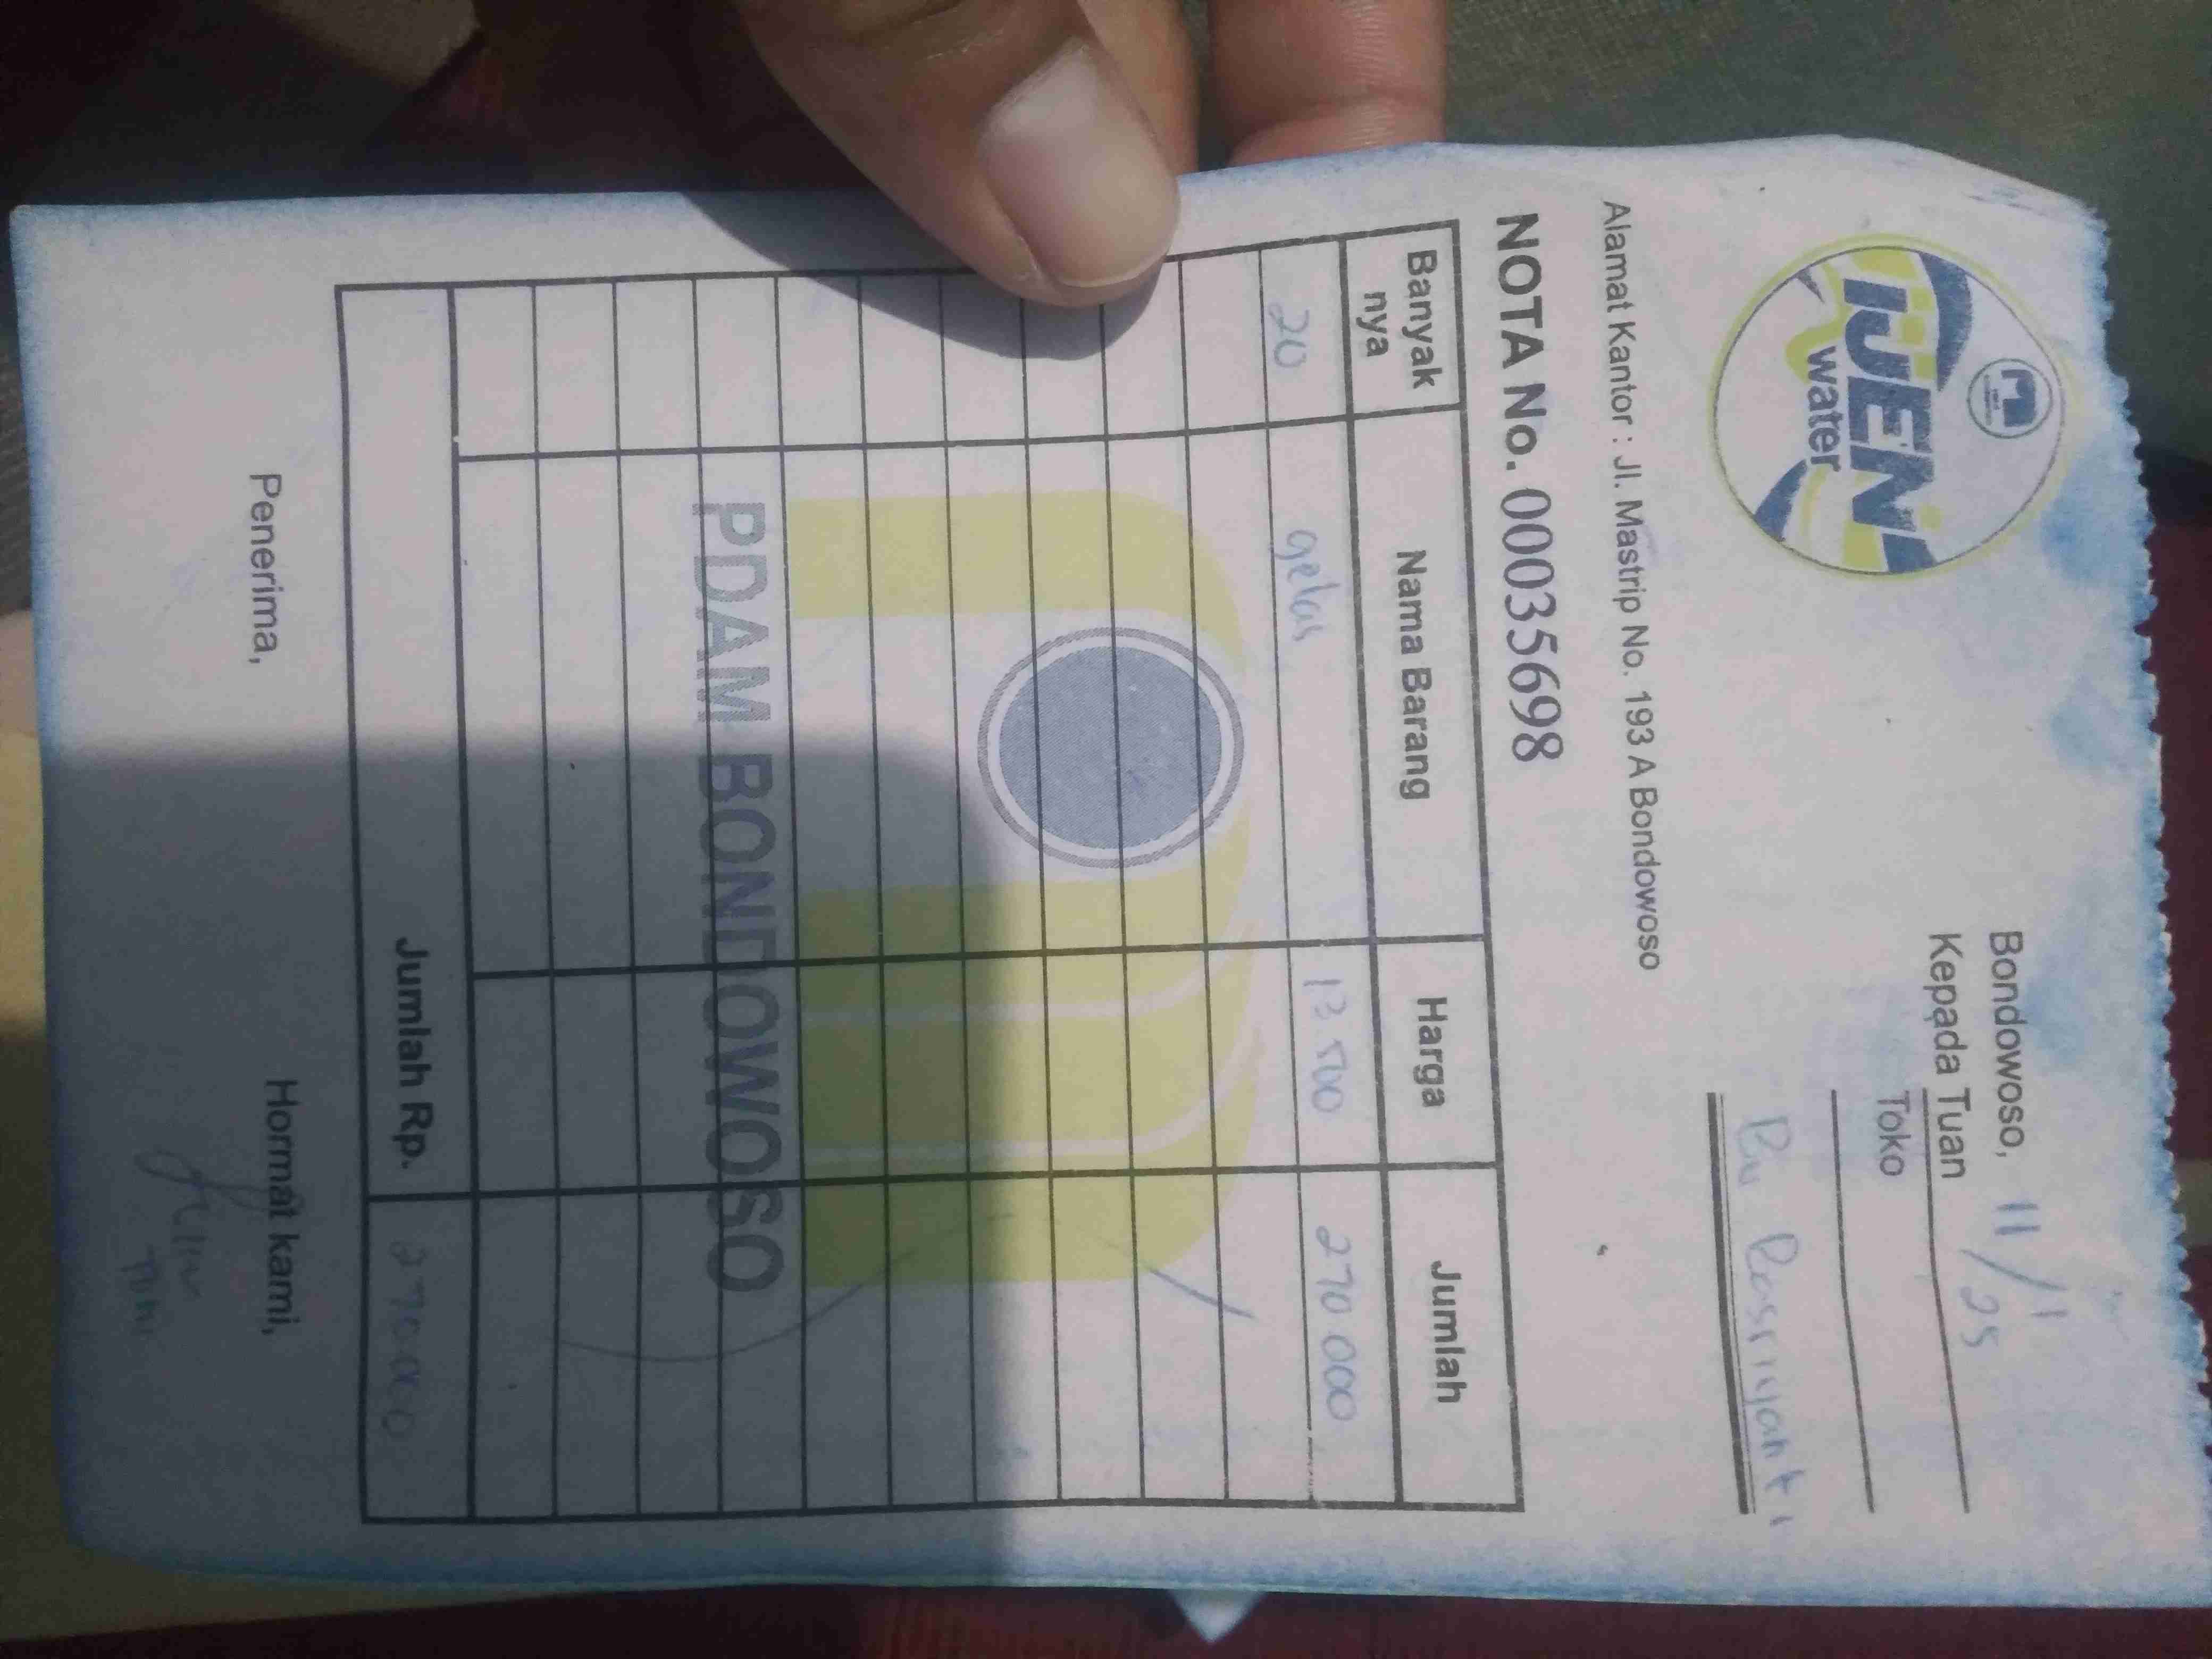 IJEN
water
Bondowoso, 11/1 25
Kepada Tuan
Toko
Bu Rasriyanti
Alamat Kantor : Jl. Mastrip No. 193 A Bondowoso
NOTA No. 00035698
Banyak nya Nama Barang Harga Jumlah
20 gelas 13.500 270.000
PDAM BONDOWOSO
Jumlah Rp. 270.000
Penerima, Hormat kami,